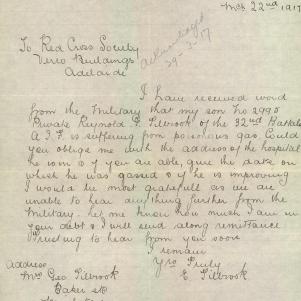 Mch 22nd 1917
To Red Cross Society
Verco Buildings
Adelaide
Acknowledged
29-3-17
I have received word
from the Military that my son No 2995
Private Reynold G Tilbrook of the 32nd Battalion
A.I.F. is suffering from poisonous gas. Could
you oblige me with the address of the hospital
he is in & if you are able, give the date on
which he was gassed & if he is improving
I would be most gratefull as we are
unable to hear anything further from the
Military. Let me know how much I am in
your debt & I will send along remittance
Trusting to hear from you soon
I remain
Yrs Truly
E. Tilbrook
Address
Mrs Geo Tilbrook
Baker St